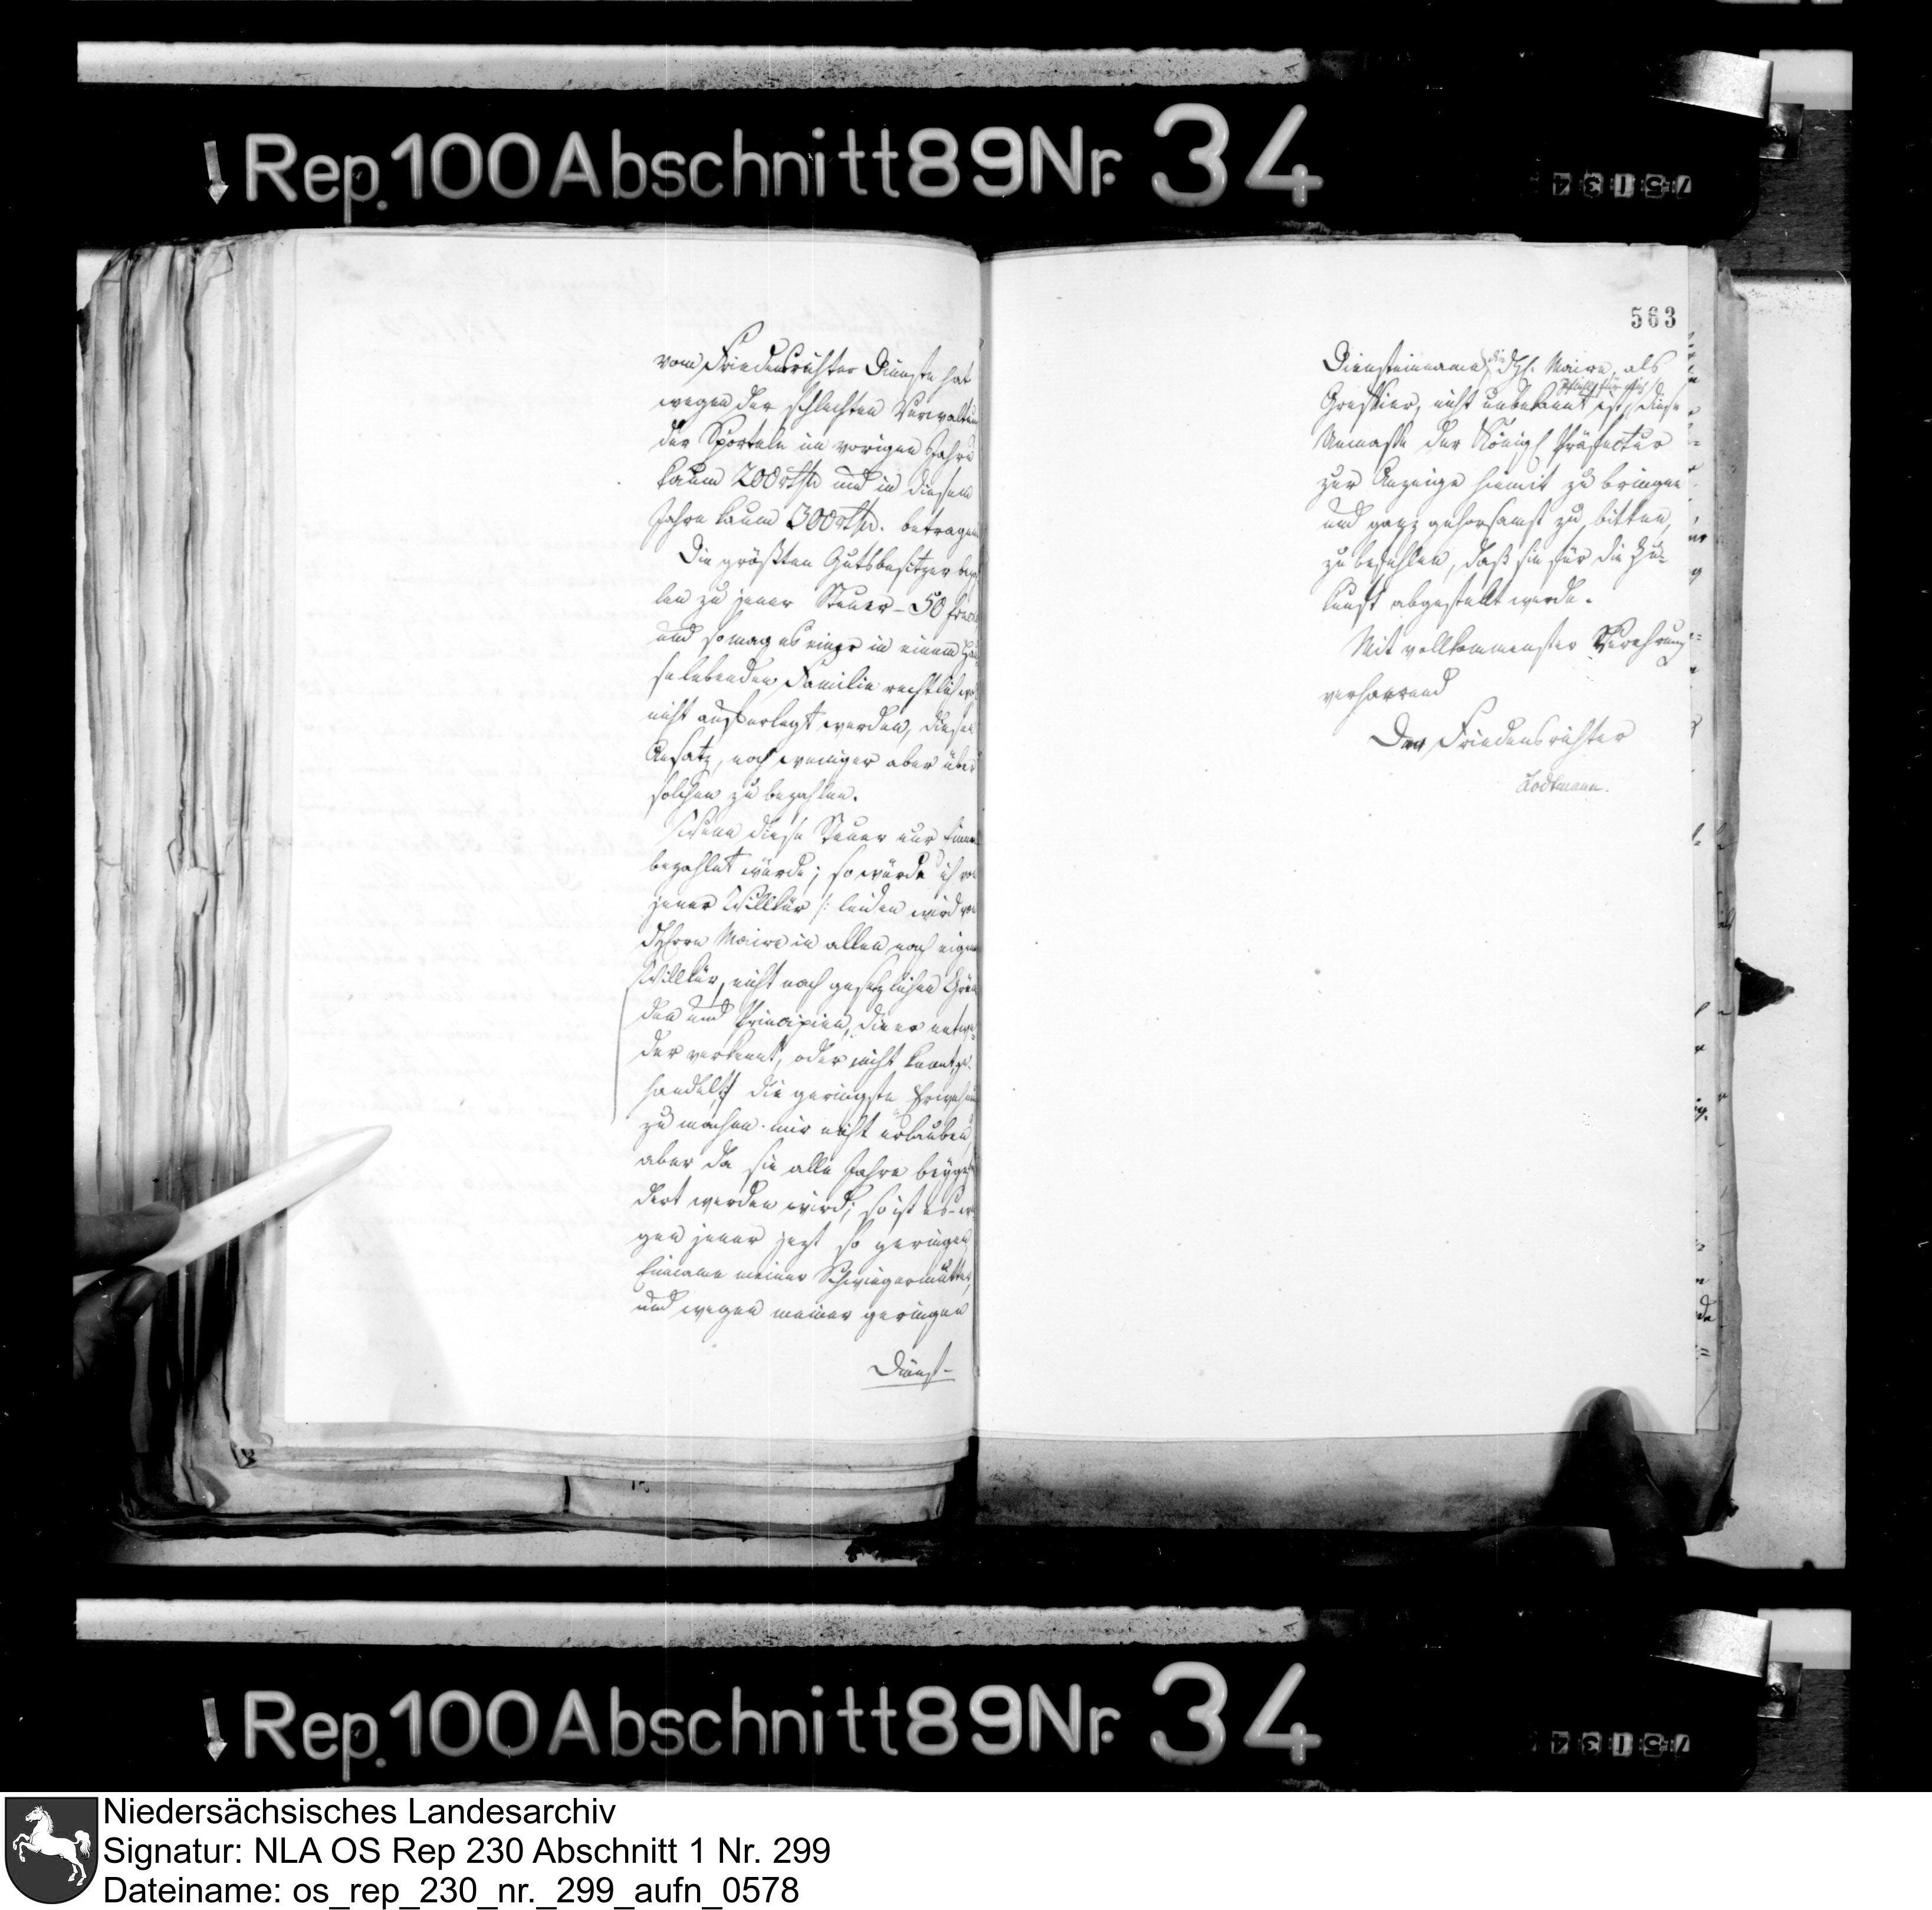 Rep. 100 Abschnitt 89 Nr. 34
75134
vom Friedensrichter Dienste hat
wegen der schlechten Verwaltun
der Sporteln im vorigen Jahre
kaum 200 rthr und in diesem
Jahre kaum 300 rthr. betragen
Die größten Gutsbesitzer beza
len zu jener Steuer - 50 franc
und so mag es einer in einem Hau
se lebenden Familie rechtlich
nicht auferlegt werden, diesen
Ansatz, noch weniger aber über
solchen zu bezahlen.
Wenn diese Steuer nur Einmal
bezahlet würde; so würde ich von
jener Willkür /: leider wird von
Maire in allen nach eigener
Willkür, nicht nach gesezlichen Grün
den und Principien, die er entwe-
der verkennt, oder nicht kennt, ge-
handelt :/ die geringste Erwehnung
zu machen mir nicht erlauben,
aber da sie alle Jahre beyge
dert werden wird; so ist es we-
gen jener jezt so geringen
Einname meiner Schwiegermutter,
und wegen meiner geringen
Dienst-
563
Diensteinname, die dH. Maire, als
Greffier, nicht unbekannt ist, Pflicht für mich diese
Anmasse der Königl Präfectur
zur Anzeige hiemit zu bringen
und ganz gehorsamst zu bitten,
zu befehlen, daß sie für die Zu-
kunft abgestellt werde.
Mit vollkommenster Verehrung
verharrend
Der Friedensrichter
Lodtmann.
Rep. 100 Abschnitt 89 Nr. 34
75134
Niedersächsisches Landesarchiv
Signatur: NLA OS Rep 230 Abschnitt 1 Nr. 299
Dateiname: os_rep_230_nr._299_aufn_0578